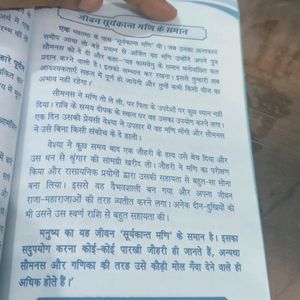 जीवन सूर्यकान्त मणि के समान
एक महात्मा के पास 'सूर्यकान्त मणि' थी। जब उनका अन्तकाल
समीप आया तो बड़े प्रयत्न से अर्जित वह मणि उन्होंने अपने पुत्र
सौमनस को दे दी और कहा—यह कामधेनु के समान मनोवांछित फल
प्रदान करने वाली है। इसको सम्भाल कर रखना। इससे तुम्हारी सब
आवश्यकताएँ सहज में पूर्ण हो जायेंगी और तुम्हें कभी किसी चीज का
अभाव नहीं रहेगा।'
सौमनस ने मणि तो ले ली, पर पिता के उपदेशों पर कुछ ध्यान नहीं
दिया। रात्रि के समय दीपक के स्थान पर वह उसका उपयोग करने लगा।
एक दिन उसकी प्रेयसी वेश्या ने उपहार में वह मणि माँगी और सौमनस
ने उसे बिना किसी संकोच के दे डाली।
वेश्या ने कुछ समय बाद एक जौहरी के हाथ उसे बेच दिया और
उस धन से श्रृंगार की सामग्री खरीद ली। जौहरी ने मणि का परीक्षण
किया और रासायनिक प्रयोगों द्वारा उसकी सहायता से बहुत-सा सोना
बना लिया। इससे वह वैभवशाली बन गया और अपना जीवन
राजा-महाराजाओं की तरह व्यतीत करने लगा। अनेक दीन-दुखियों की
भी उसने उस स्वर्ण राशि से बहुत सहायता की।
मनुष्य का यह जीवन 'सूर्यकान्त मणि' के समान है। इसका
सदुपयोग करना कोई-कोई पारखी जौहरी ही जानते हैं, अन्यथा
सौमनस और गणिका की तरह उसे कौड़ी मोल गँवा देने वाले ही
अधिक होते हैं।'